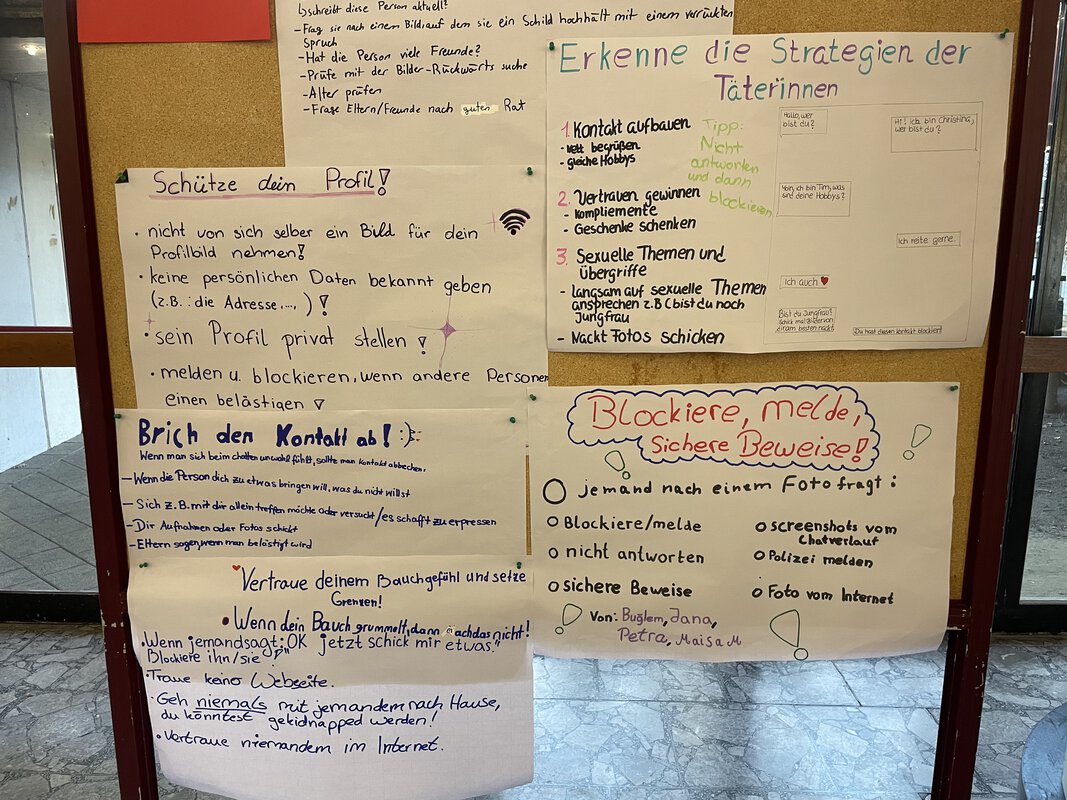 ↳schreibt diese Person aktuell?
-Frag sie nach einem Bild auf dem sie ein Schild hochhält mit einem verrückten
Spruch
-Hat die Person viele Freunde?
-Prüfe mit der Bilder-Rückwärts suche
-Alter prüfen
-Frage Eltern/Freunde nach guten Rat
Erkenne die Strategien der
Täterinnen
1. Kontakt aufbauen
- nett begrüßen
- gleiche Hobbys
2. Vertrauen gewinnen
- Komplimente
- Geschenke schenken
3. Sexuelle Themen und
Übergriffe
- langsam auf sexuelle Themen
ansprechen z.B (bist du noch
Jungfrau
- Nackt Fotos schicken
Tipp:
Nicht
antworten
und dann
blockieren
Hallo, wer
bist du?
Hi! ich bin Christina,
wer bist du?
Moin, ich bin Tim, was
sind deine Hobbys?
Ich reite gerne.
Ich auch ♥
Bist du Jungfrau?
Schick mal Bilder von
dir am besten nackt
Du hast diesen kontakt blockiert
Schütze dein Profil!
• nicht von sich selber ein Bild für dein
Profilbild nehmen!
• keine persönlichen Daten bekannt geben
(z.B.: die Adresse....) !
• sein Profil privat stellen !
• melden u. blockieren, wenn andere Personen
einen belästigen !
Brich den Kontakt ab!
Wenn man sich beim chatten unwohl fühlt, sollte man kontakt abbrechen.
- Wenn die Person dich zu etwas bringen will, was du nicht willst
- Sich z.B. mit dir allein treffen möchte oder versucht/es schafft zu erpressen
- Dir Aufnahmen oder Fotos schickt
- Eltern sagen, wenn man belästigt wird
Blockiere, melde,
Sichere Beweise!
jemand nach einem Foto fragt:
○ Blockiere/melde
○ nicht antworten
○ sichere Beweise
○ screenshots vom
Chatverlauf
○ Polizei melden
○ Foto vom Internet
Von: Buğlem, Jana,
Petra, Maisa M
♥Vertraue deinem Bauchgefühl und setze
Grenzen!
• Wenn dein Bauch grummelt, dann mach das nicht!
• Wenn jemand sagt: „OK jetzt schick mir etwas."
Blockiere ihn/sie!
• Traue keiner Webseite.
• Geh niemals mit jemandem nach Hause,
du könntest gekidnapped werden!
• Vertraue niemandem im Internet.